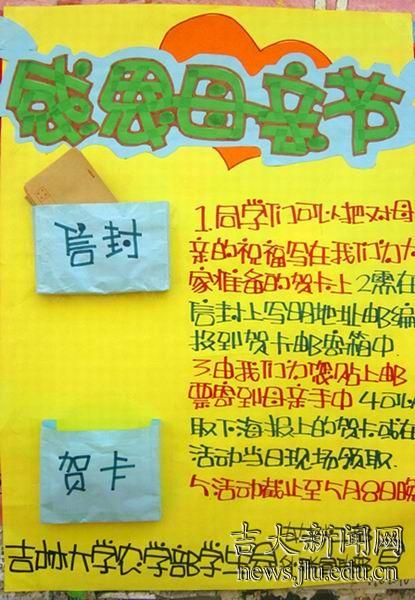 感恩母亲节
信封
贺卡
1.同学们可以把对母
亲的祝福写在我们为大
家准备的贺卡上 2需在
信封上写明地址邮编
投到贺卡邮寄箱中
3由我们为您贴上邮
票寄到母亲手中 4可以
取下海报上的贺卡或在
活动当日现场领取
5活动截止至5月8日晚
吉林大学农学部学生会
吉大新闻网
news.jlu.edu.cn